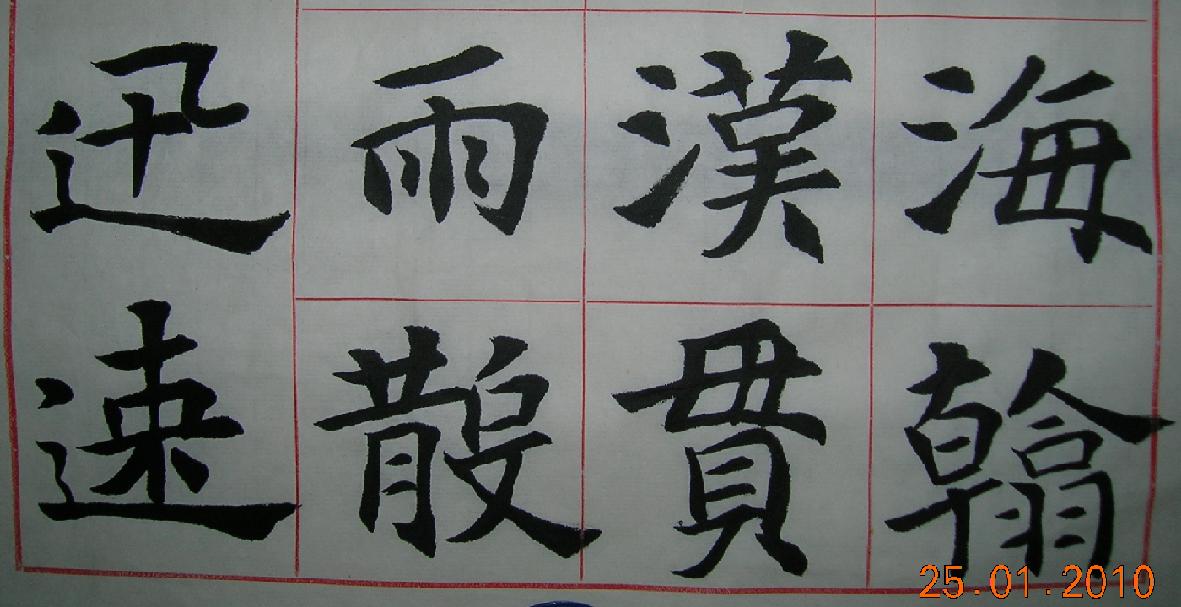 海翰
漢貫
雨散
迅速
25.01.2010